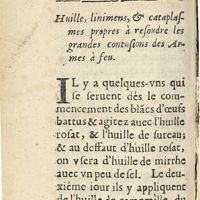 Huille, linimens, & cataplaſ-
mes propres à reſoudre les
grandes contuſions des Ar-
mes à feu.
IL y a quelques-vns qui
ſe ſeruent dés le com-
mencement des blãcs d'œufs
battus & agitez auec l'huille
roſat, & l'huille de ſureau;
& au deffaut d'huille roſat,
on vſera d'huille de mirrhe
auec vn peu de ſel. Le deu-
xiéme iour ils y appliquent
de l'huille de camomille, du